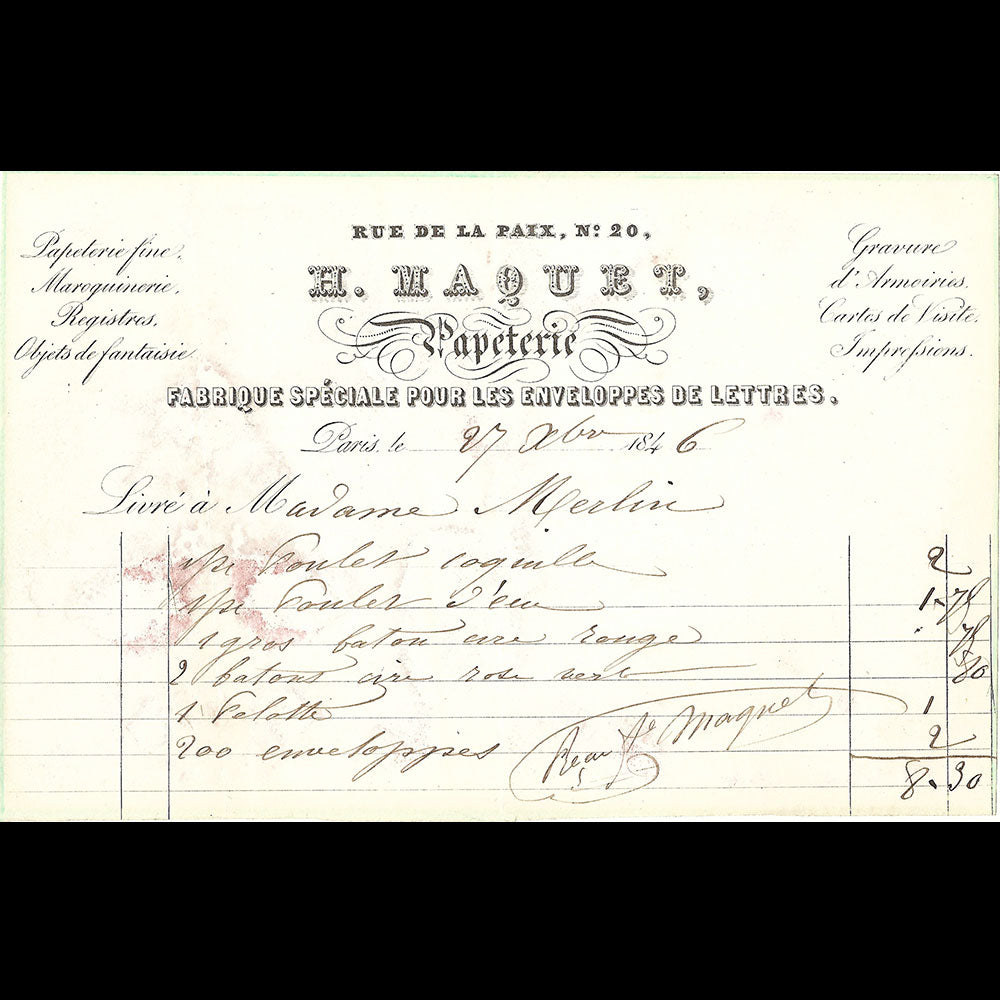 RUE DE LA PAIX, Nº 20,
H. MAQUET,
Papeterie
Papeterie fine.
Maroquinerie.
Registres.
Objets de fantaisie
Gravure
d'Armoiries.
Cartes de Visite.
Impressions.
FABRIQUE SPÉCIALE POUR LES ENVELOPPES DE LETTRES.
Paris, le 27 Xbre 1846
Livré à Madame Merlin
Poulet coquille 2
Poulet 1-75
1 gros baton cire rouge 75
2 batons cire rose verte 80
1 Pelotte 1
200 enveloppes 2
8-30
Maquet